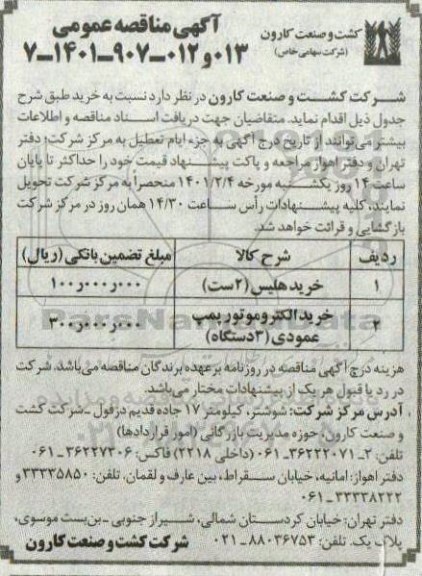 کشت و صنعت کارون
(شرکت سهامی خاص)
آگهی مناقصه عمومی
۰۱۳ و ۰۱۲-۹۰۷-۱۴۰۱-۷
شرکت کشت و صنعت کارون در نظر دارد نسبت به خرید طبق شرح
جدول ذیل اقدام نماید. متقاضیان جهت دریافت اسناد مناقصه و اطلاعات
بیشتر می‌توانند از تاریخ درج آگهی به جزء ایام تعطیل به مرکز شرکت؛ دفتر
تهران و دفتر اهواز مراجعه و پاکت پیشنهاد قیمت خود را حداکثر تا پایان
ساعت ۱۴ روز یکشنبه مورخه ۱۴۰۱/۲/۴ منحصراً به مرکز شرکت تحویل
نمایند، کلیه پیشنهادات رأس ساعت ۱۴/۳۰ همان روز در مرکز شرکت
بازگشایی و قرائت خواهد شد.
ردیف شرح کالا مبلغ تضمین بانکی (ریال)
۱ خرید هلیس (۲ست) ۱۰۰٫۰۰۰٫۰۰۰
۲ خرید الکتروموتور پمپ عمودی (۳دستگاه) ۳۰۰٫۰۰۰٫۰۰۰
هزینه درج آگهی مناقصه در روزنامه برعهده برندگان مناقصه می‌باشد. شرکت
در رد یا قبول هر یک از پیشنهادات مختار می‌باشد.
آدرس مرکز شرکت: شوشتر، کیلومتر ۱۷ جاده قدیم دزفول - شرکت کشت
و صنعت کارون، حوزه مدیریت بازرگانی (امور قراردادها)
تلفن: ۲-۳۶۲۲۲۰۷۱-۰۶۱ (داخلی ۲۲۱۸) فاکس: ۳۶۲۲۷۳۰۶-۰۶۱
دفتر اهواز: امانیه، خیابان سقراط، بین عارف و لقمان. تلفن: ۳۳۳۳۵۸۵۰ و
۳۳۳۳۸۲۲۲-۰۶۱
دفتر تهران: خیابان کردستان شمالی، شیراز جنوبی - بن‌بست موسوی،
پلاک یک. تلفن: ۸۸۰۳۶۷۵۳-۰۲۱
شرکت کشت و صنعت کارون